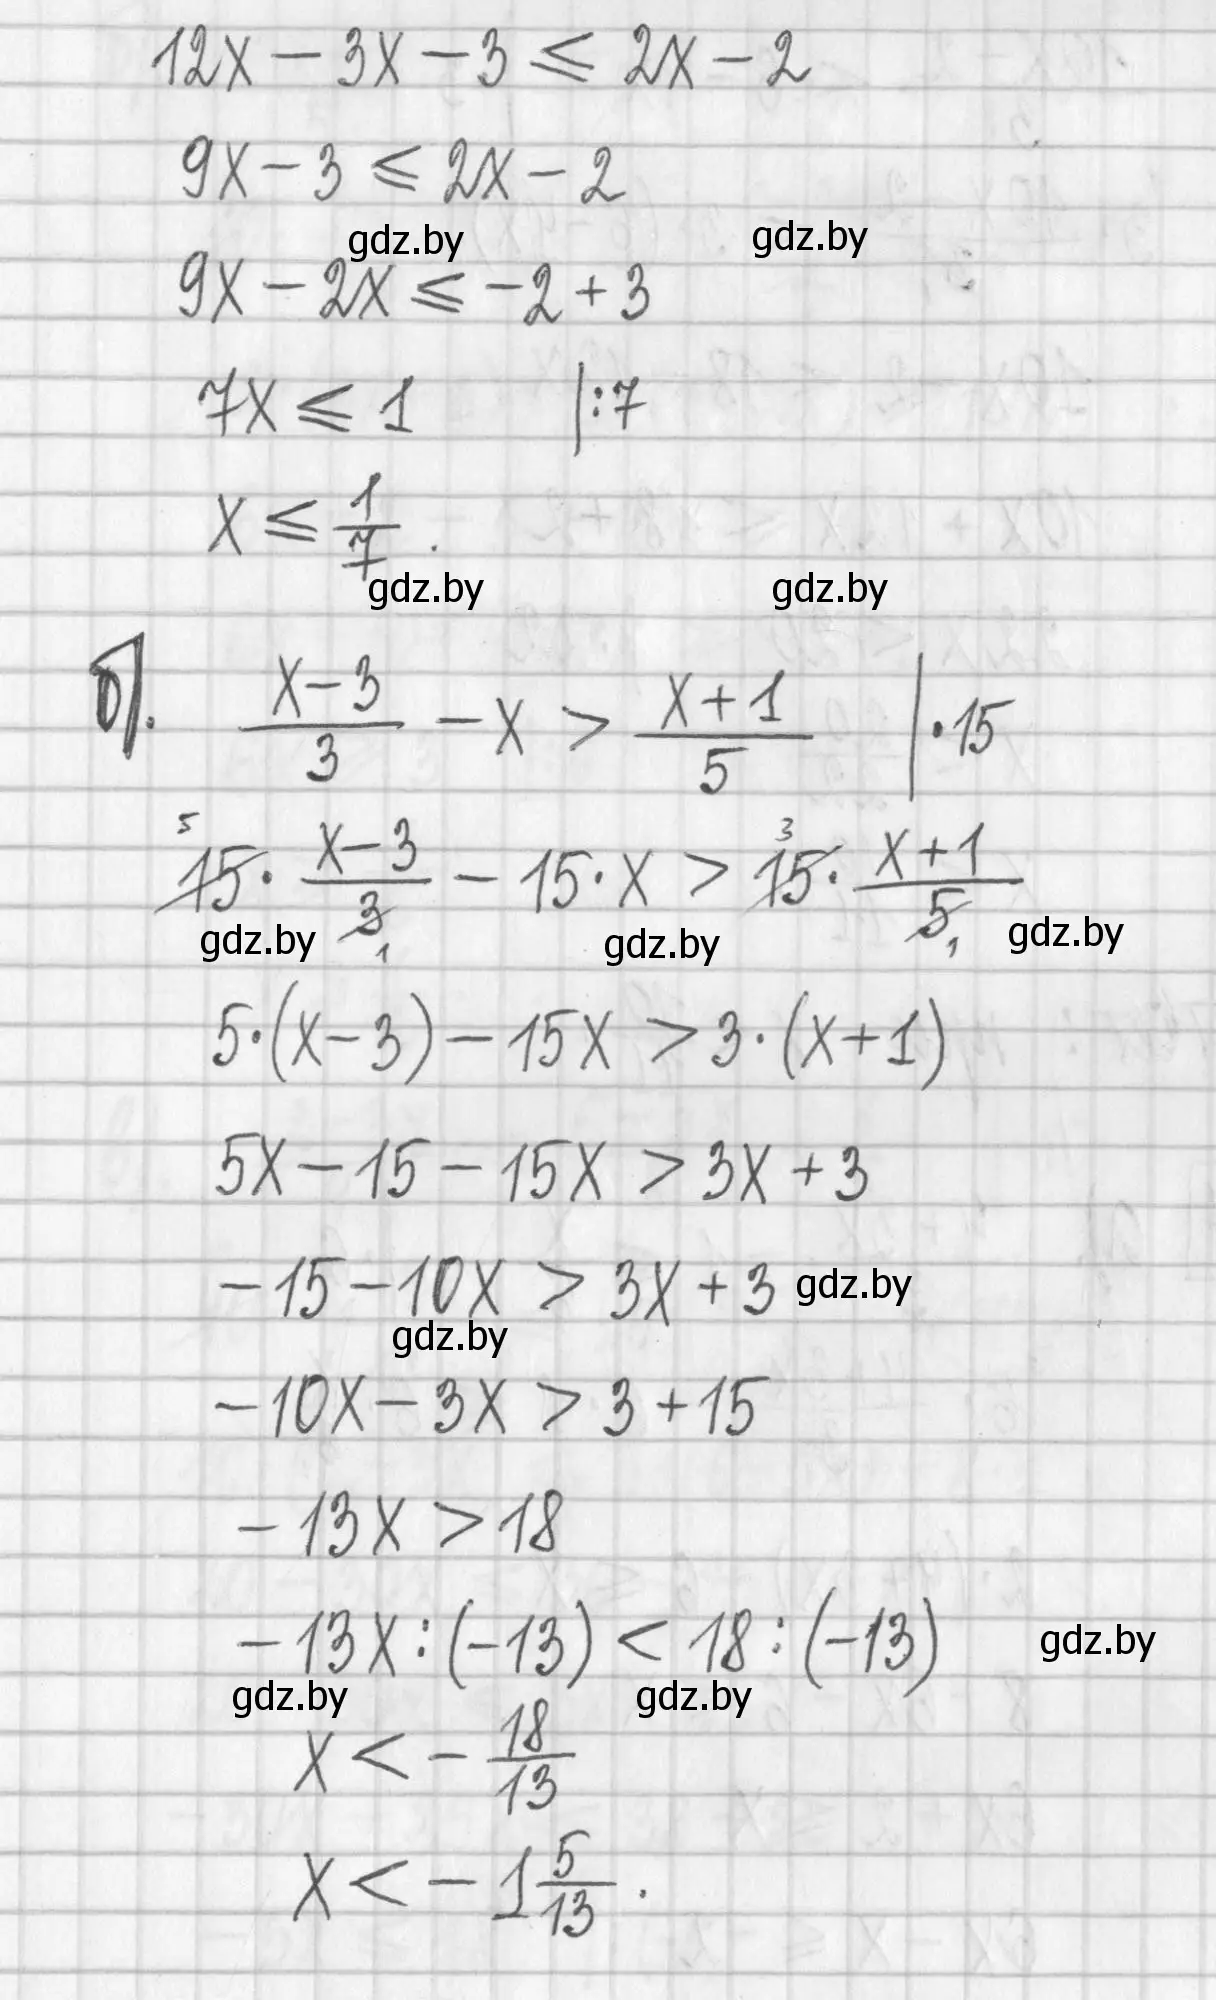 12x − 3x − 3 ≤ 2x − 2
9x − 3 ≤ 2x − 2
gdz.by gdz.by
9x − 2x ≤ −2 + 3
7x ≤ 1 |:7
x ≤ 1/7.
gdz.by gdz.by
б). (x−3)/3 − x > (x+1)/5 |·15
5 3
15 · (x−3)/3 − 15·x > 15 · (x+1)/5
1 1
gdz.by gdz.by gdz.by
5·(x−3) − 15x > 3·(x+1)
5x − 15 − 15x > 3x + 3
−15 − 10x > 3x + 3 gdz.by
gdz.by
−10x − 3x > 3 + 15
−13x > 18
−13x : (−13) < 18 : (−13) gdz.by
gdz.by gdz.by
x < −18/13
x < −1 5/13.